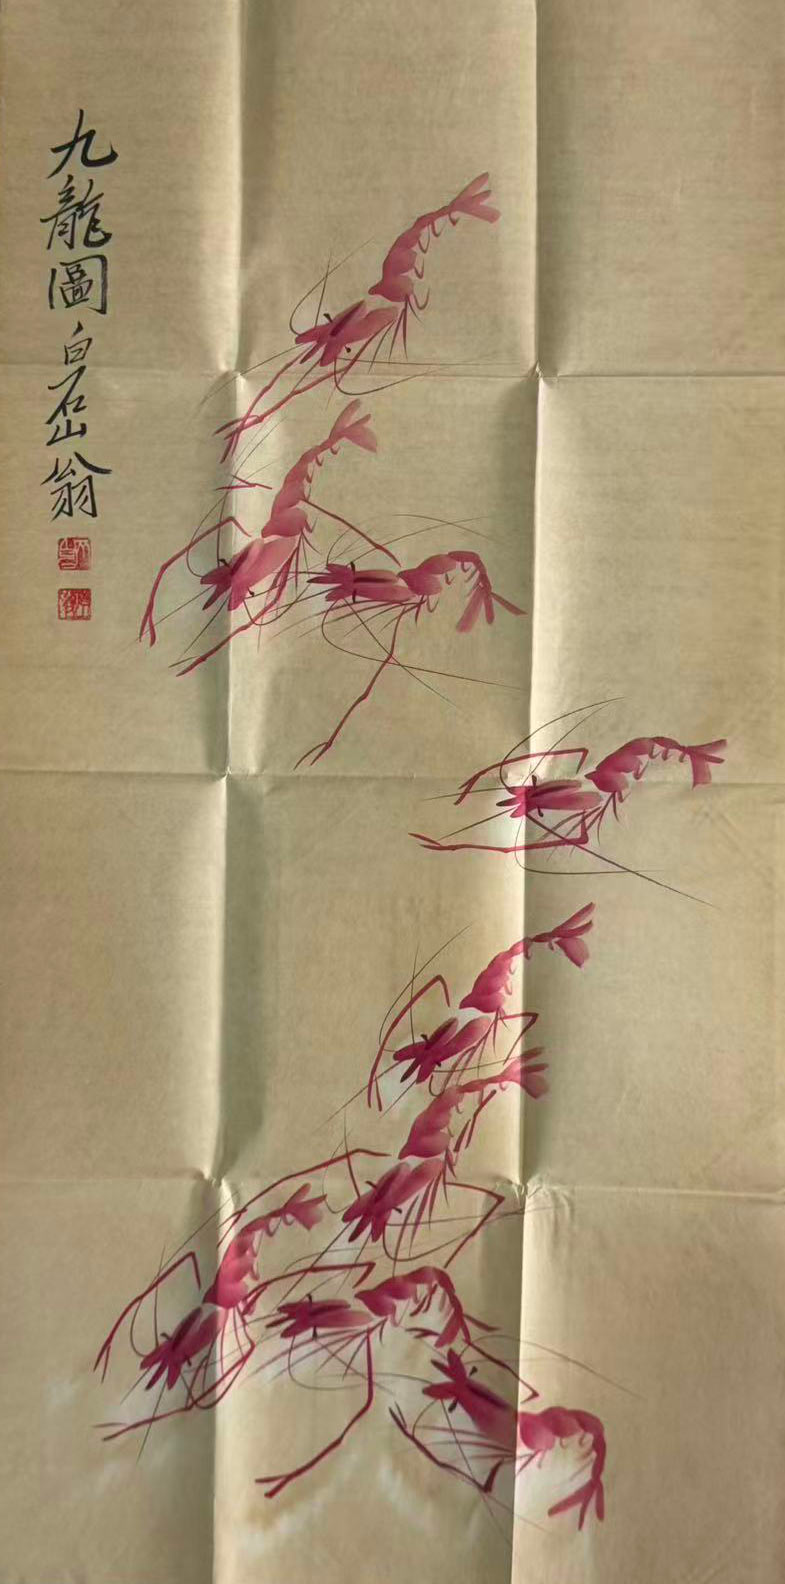 九龍圖白石山翁